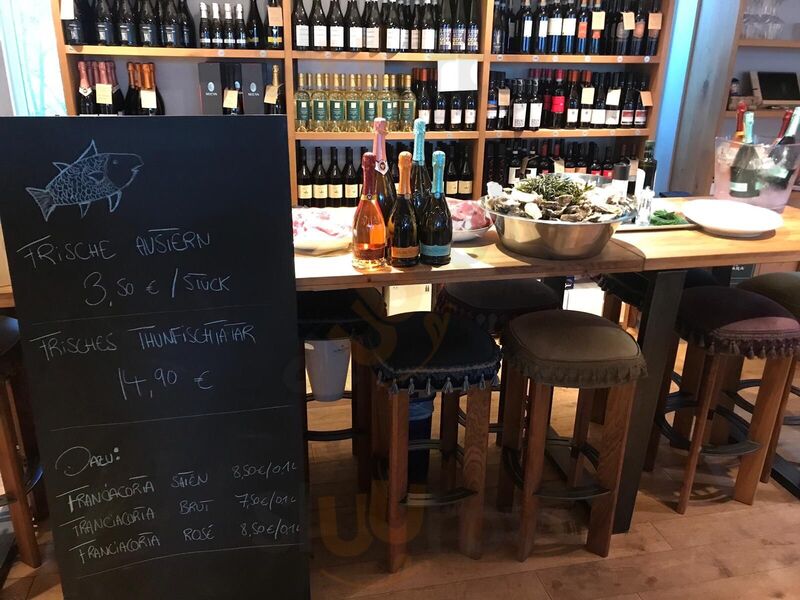 FRISCHE AUSTERN
3,50 € / STÜCK
FRISCHES THUNFISCHTATAR
14,90 €
DAZU:
FRANCIACORTA SATÈN 8,50€/0,1L
FRANCIACORTA BRUT 7,50€/0,1L
FRANCIACORTA ROSÉ 8,50€/0,1L